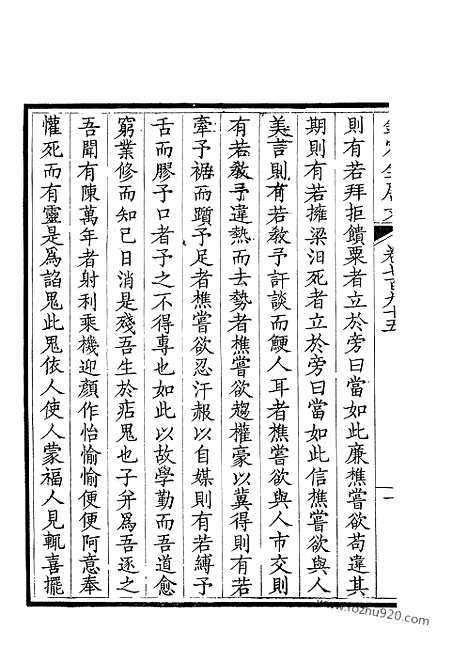 欽定全唐文 卷七百九十五 一
則有若拜拒饋粟者立於旁曰當如此廉樵嘗欲苟違其
期則有若擁梁汨死者立於旁曰當如此信樵嘗欲與人
美言則有若敎予訐談而鯁人耳者樵嘗欲與人市交則
有若敎予違熱而去勢者樵嘗欲趨權豪以冀得則有若
牽予裾而躓予足者樵嘗欲忍汗赧以自媒則有若縛予
舌而膠予口者予之不得專也如此以故學勤而吾道愈
窮業修而知已日消是殘吾生於痁鬼也子幷爲吾逐之
吾聞有陳萬年者射利乘機迎顏作怡愉愉便便阿意奉
懽死而有靈是爲諂鬼此鬼依人使人蒙福人見輒喜擺
www.fozhu920.com